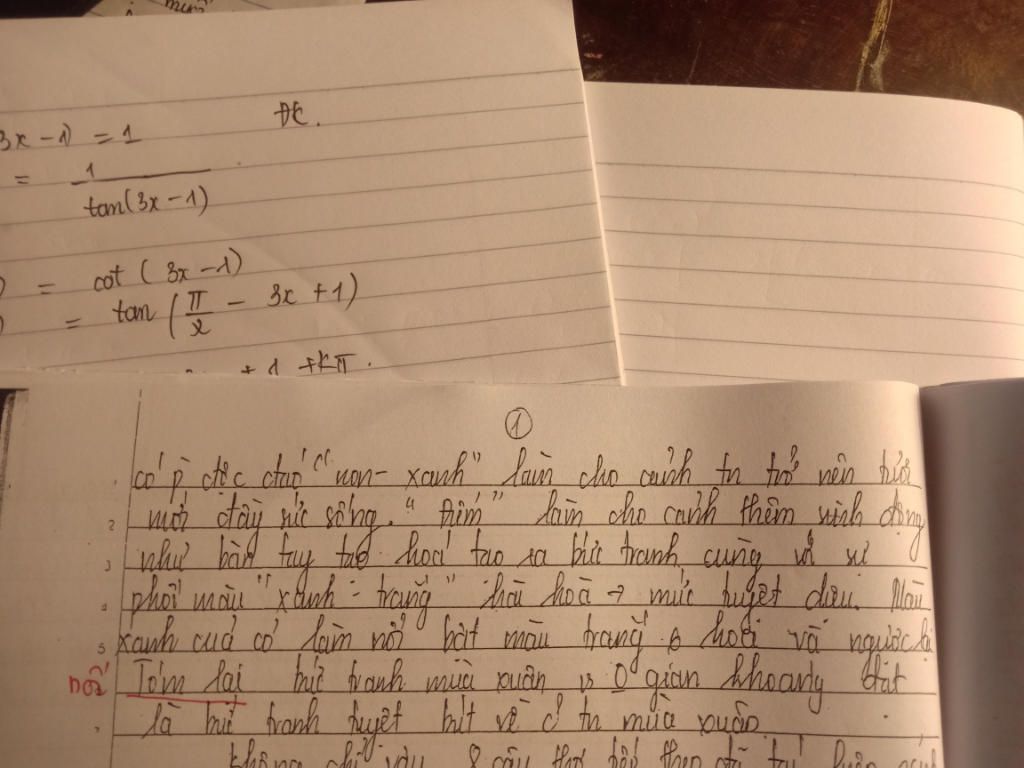 3x - 1) = 1
ĐC.
= 1 / tan(3x - 1)
) = cot (3x - 1)
) = tan (π/2 - 3x + 1)
+ 1 + kπ.
1
có độc đáo "non - xanh" làm cho cảnh tn trở nên tươi
2 mới đầy sức sống. "Điểm" làm cho cảnh thêm sinh động
3 như bàn tay tạo hoá tạo ra bức tranh cùng vs sự
4 phối màu "xanh - trắng" hài hoà → mức tuyệt diệu. Màu
5 xanh cuả cỏ làm nổi bật màu trắng hoa và ngược lại
nối Tóm lại bức tranh mùa xuân vs 0 gian khoáng đạt
là bức tranh tuyệt bút về tn mùa xuân.
không chỉ vậy 8 câu thơ tiếp theo